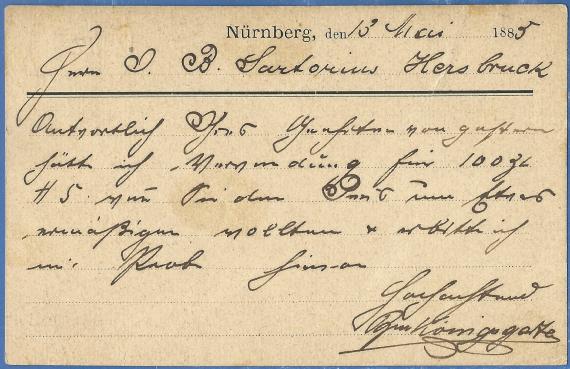 Nürnberg, den 13 Mai 1885
Herrn I. B. Sartorius Hersbruck
Antwortlich Ihres Geehrten von gestern
hätte ich Verwendung für 100
# 5 wenn Sie den Preis um Etwas
ermäßigen wollten & erbitte ich
mir Probe hievon
Hochachtend
Königsgasse